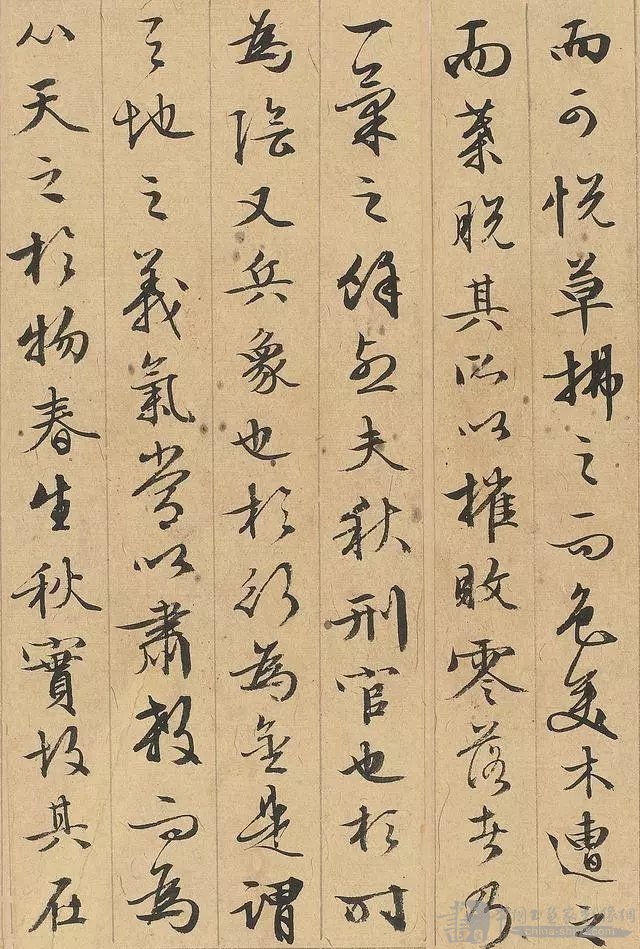 而可悦草拂之而色變木遭之
而葉脱其所以摧敗零落者乃
一氣之餘烈夫秋刑官也於时
為陰又兵象也於行為金是謂
天地之義氣常以肅殺而為
心天之於物春生秋實故其在